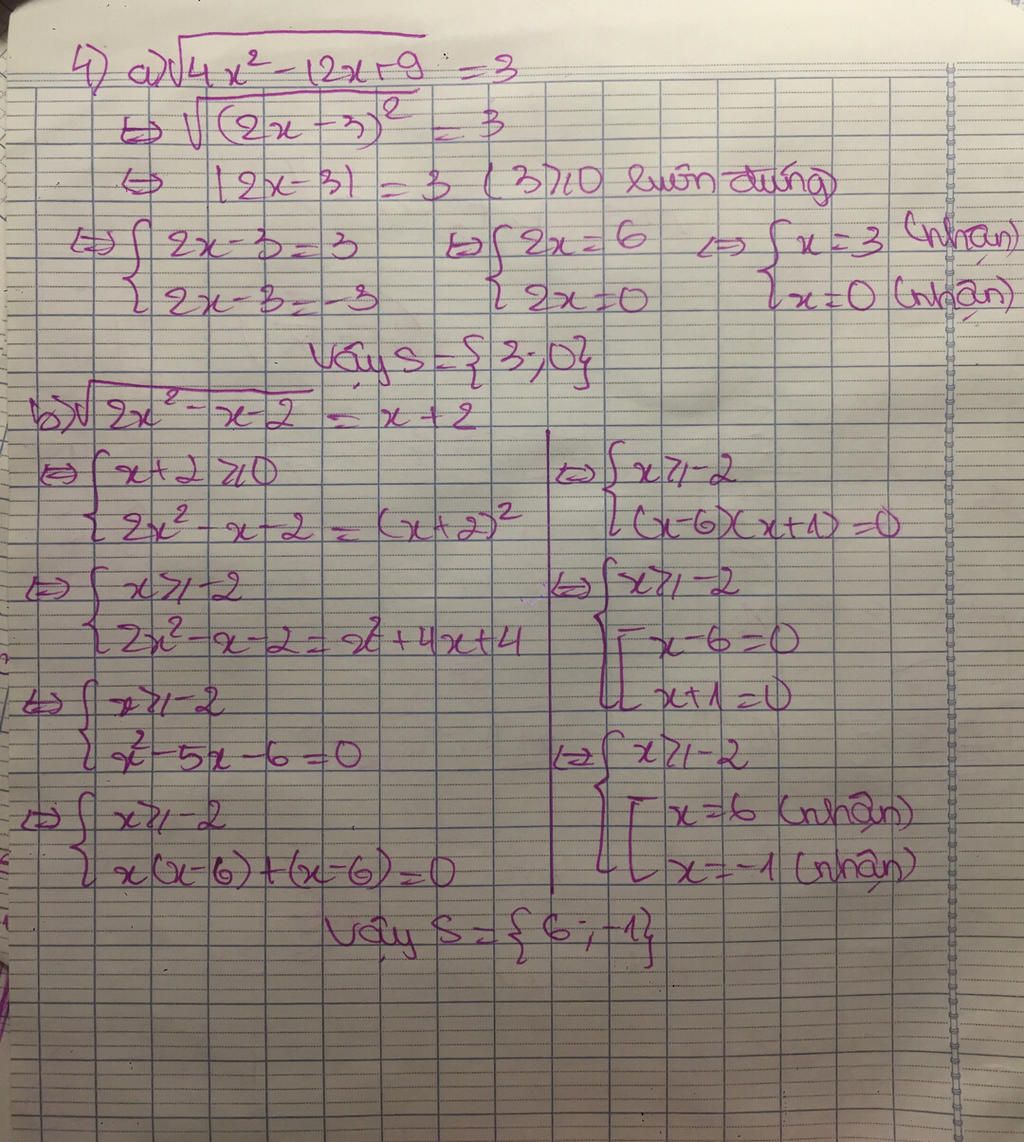 4) a) √(4x² - 12x + 9) = 3
⇔ √((2x - 3)²) = 3
⇔ |2x - 3| = 3 (3 ≥ 0 luôn đúng)
⇔ { 2x - 3 = 3 ⇔ { 2x = 6 ⇔ { x = 3 (nhận)
{ 2x - 3 = -3 { 2x = 0 { x = 0 (nhận)
Vậy S = {3; 0}
b) √(2x² - x - 2) = x + 2
⇔ { x + 2 ≥ 0
{ 2x² - x - 2 = (x + 2)²
⇔ { x ≥ -2
{ 2x² - x - 2 = x² + 4x + 4
⇔ { x ≥ -2
{ x² - 5x - 6 = 0
⇔ { x ≥ -2
{ x(x - 6) + (x - 6) = 0
⇔ { x ≥ -2
{ (x - 6)(x + 1) = 0
⇔ { x ≥ -2
{ [ x - 6 = 0
[ x + 1 = 0
⇔ { x ≥ -2
{ [ x = 6 (nhận)
[ x = -1 (nhận)
Vậy S = {6; -1}